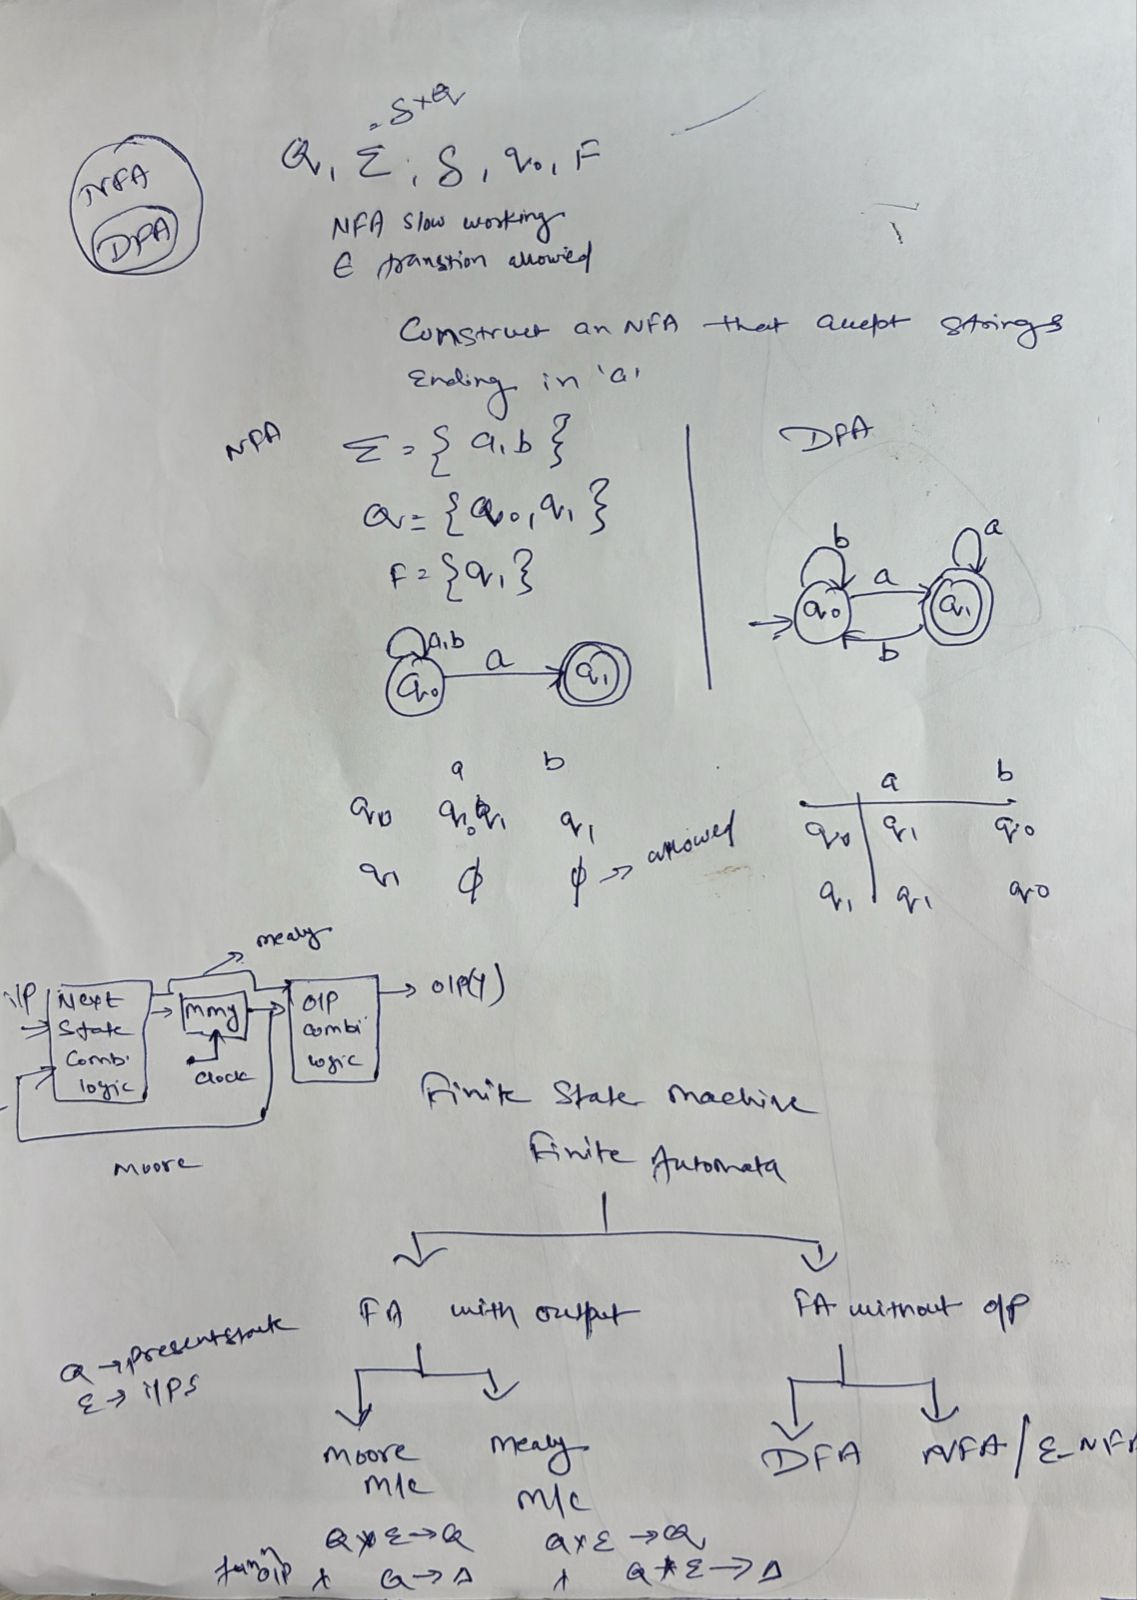 = δ*Q
Q, Σ, δ, q₀, F
NFA
DFA
NFA slow working
ϵ transtion allowed
Construct an NFA that accept strings
Ending in 'a'
NFA
Σ = { a, b }
Q = { q₀, q₁ }
F = { q₁ }
a,b
q₀ a q₁
DFA
b a
q₀ a q₁
b
a b
q₀ q₀q₁ q₁
q₁ ϕ ϕ → allowed
a b
q₀ q₁ q₀
q₁ q₁ q₀
mealy
i/P
Next
State
Combi
logic
mmy
clock
O/P
combi
logic
O/P(Y)
Moore
Finite State machine
Finite Automata
FA with output FA without o/p
Q → present state
Σ → i/PS
Moore
M/c
Mealy
M/c
DFA NFA / Σ-NFA
Q × Σ → Q Q × Σ → Q
O/P λ Q → Δ λ Q * Σ → Δ